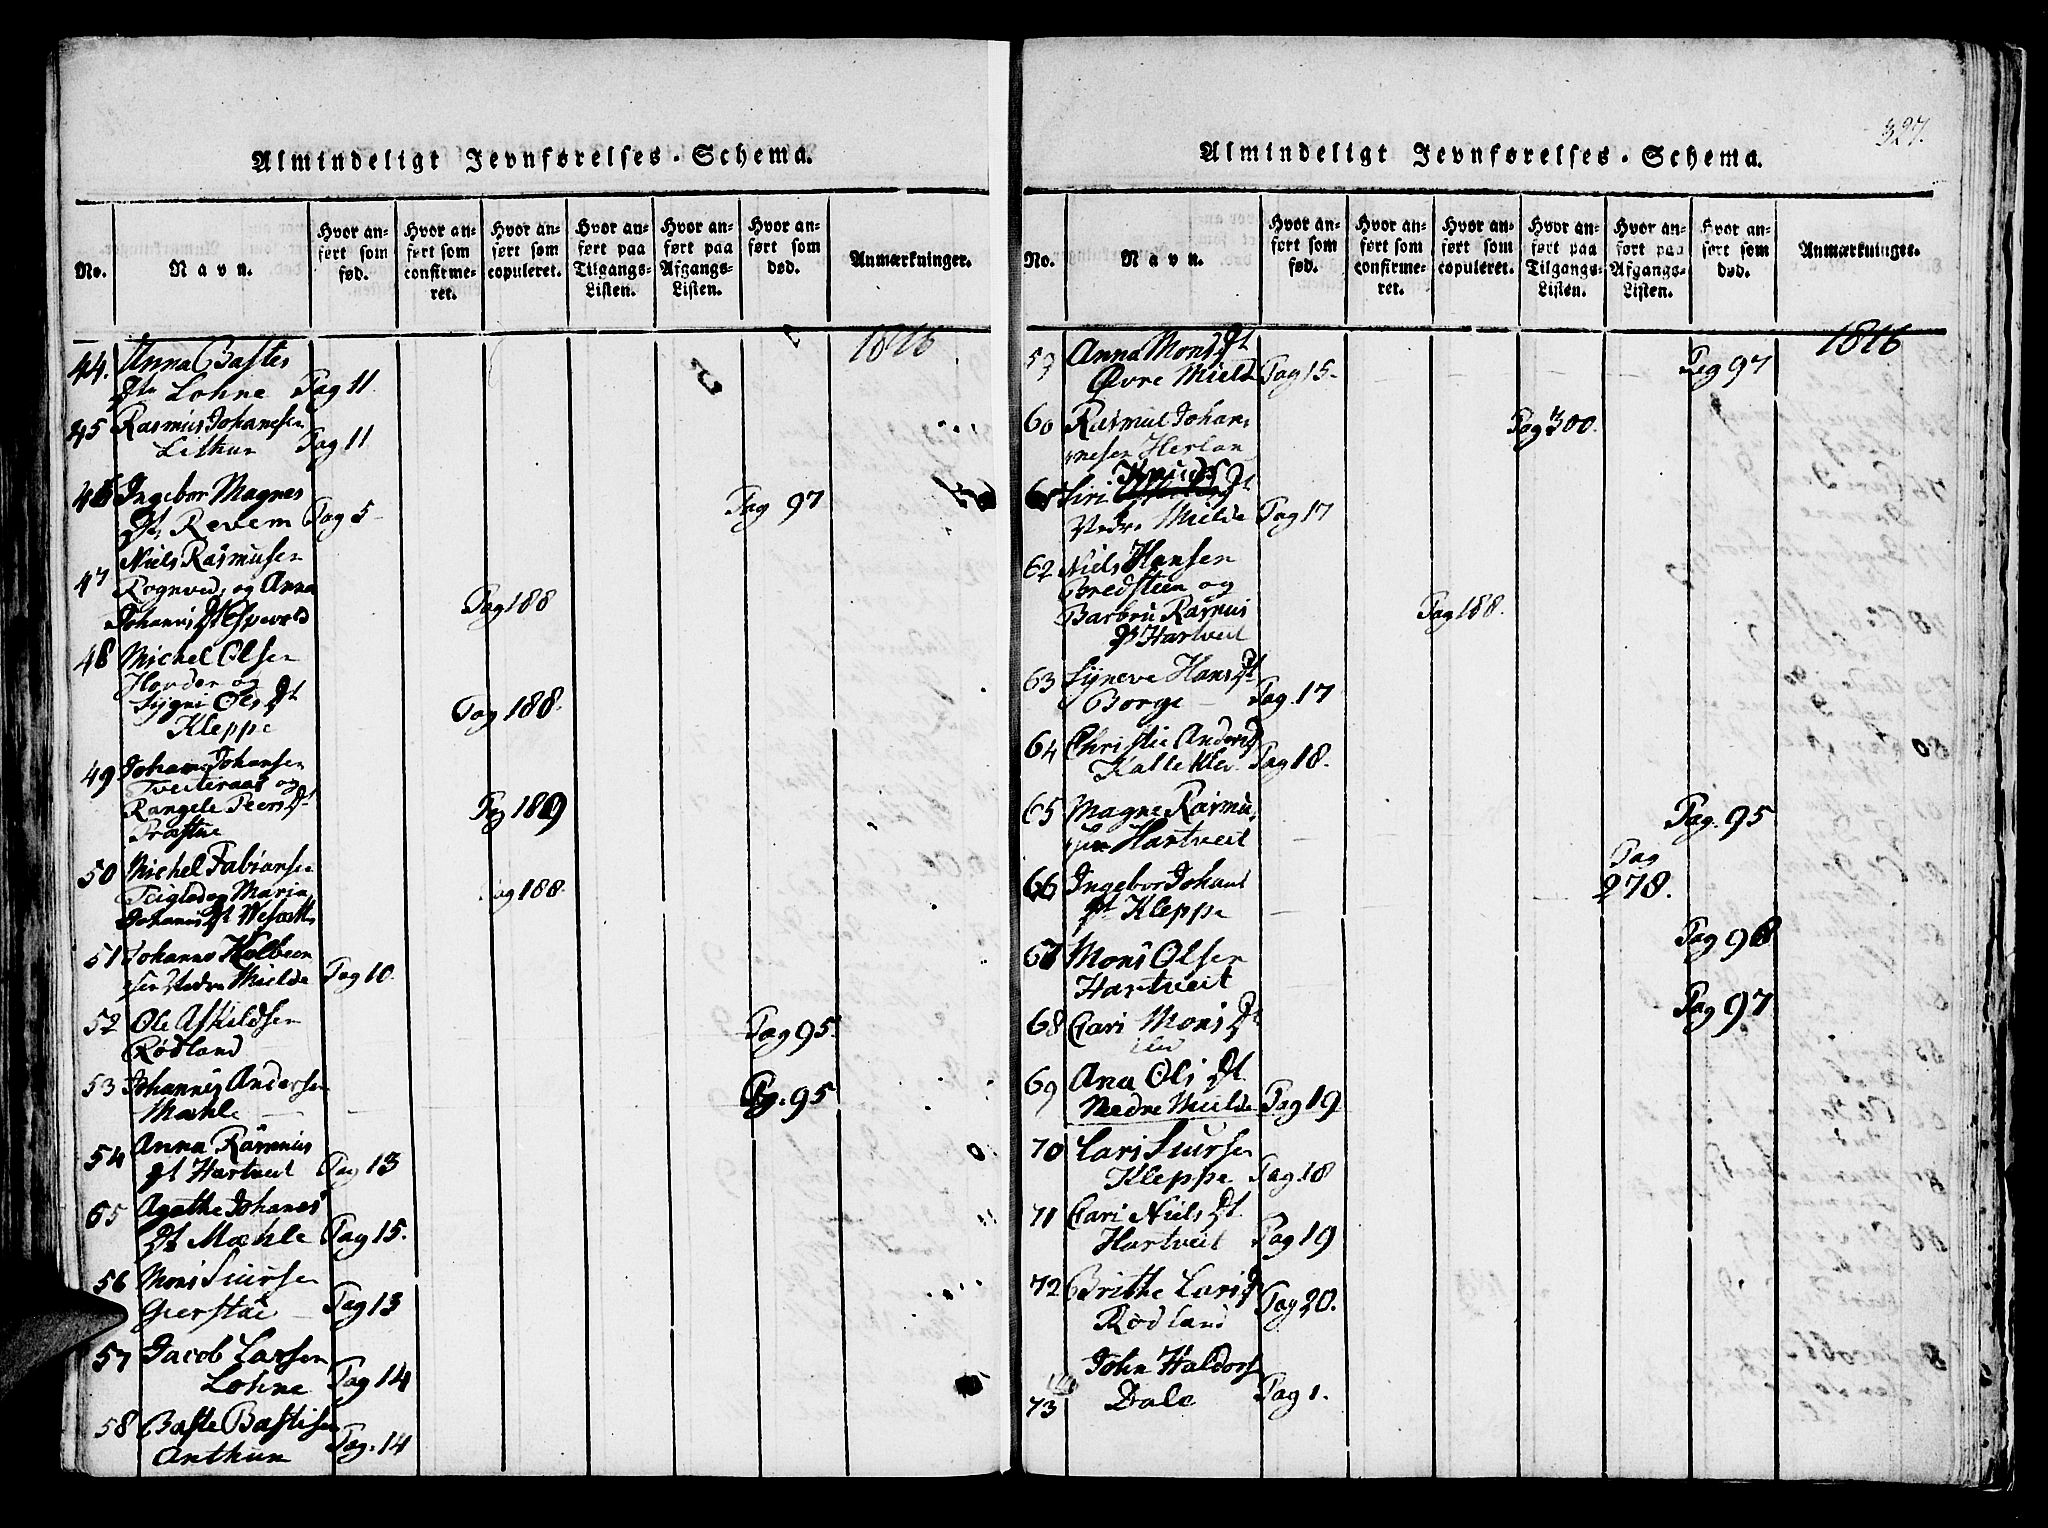 Almindeligt Jevnførelses-Schema.
No.
Navn.
Hvor anført som fød.
Hvor anført som confirmeret.
Hvor anført som copuleret.
Hvor anført paa Tilgangs-Listen.
Hvor anført paa Afgangs-Listen.
Hvor anført som død.
Anmærkninger.
1816
44. Anna Bastes
Dt. Lohne Pag 11.
45 Rasmus Johannesen
Lithun Pag 11
46 Ingebor Magnes
Dt. Revem Pag 5 Pag 97
47 Niels Rasmusen
Rognved, og Anna
Johannis Dt Espevold Pag 188
48 Michel Olsen
Hovden og
Sygni Ols Dt
Kleppe Pag 188.
49 Johan Johansen
Tveiteraas og
Rangele Peers Dt
Præstue Pag 189
50 Michel Fabiansen
Teigland og Maria
Johannis Dt Pag 188.
51 Johanns Kolbeen
sen Nedre Mielde Pag 10.
52 Ole Askildsen
Rødland Pag 95.
53 Johannis Andersen
Mæhle Pag. 95
54 Anna Rasmus
Dt Hartveit Pag 13
55 Agathe Johanes
Dt Mæhle Pag 15.
56 Mons Siursen
Gierstæ Pag 13
57 Jacob Larsen
Lohne Pag 14
58 Baste Bastisen
Arthun Pag. 14
327.
Almindeligt Jevnførelses-Schema.
No.
Navn.
Hvor anført som fød.
Hvor anført som confirmeret.
Hvor anført som copuleret.
Hvor anført paa Tilgangs-Listen.
Hvor anført paa Afgangs-Listen.
Hvor anført som død.
Anmærkninger.
1816
59 Anna Mons Dt
Øvre Mield Pag 15. Pag 97
60 Rasmus Johan
nesen Herlan Pag 300.
Knuds
61 Siri Dt
Nedre Mielde Pag 17
62 Niels Hansen
Bredsteen og
Barbru Rasmus
Dt Hartveit Pag 188.
63 Syneve Hans Dt
Borge Pag. 17
64 Christie Anders D
Kalleklev Pag 18.
65 Magne Rasmu
sen Hartveit Pag. 95
66 Ingebor Johans
Dt Kleppe Pag 278.
67 Mons Olsen
Hartveit Pag 98
68 Cari Mons Dt
Pag 97
69 Ana Ols Dt.
Nedre Mielde Pag 19
70 Lars Siursen
Kleppe Pag 18
71 Cari Niels Dt.
Hartveit Pag 19
72 Brithe Laris D
Rødland Pag 20.
73 John Haldors
Dale Pag 1.